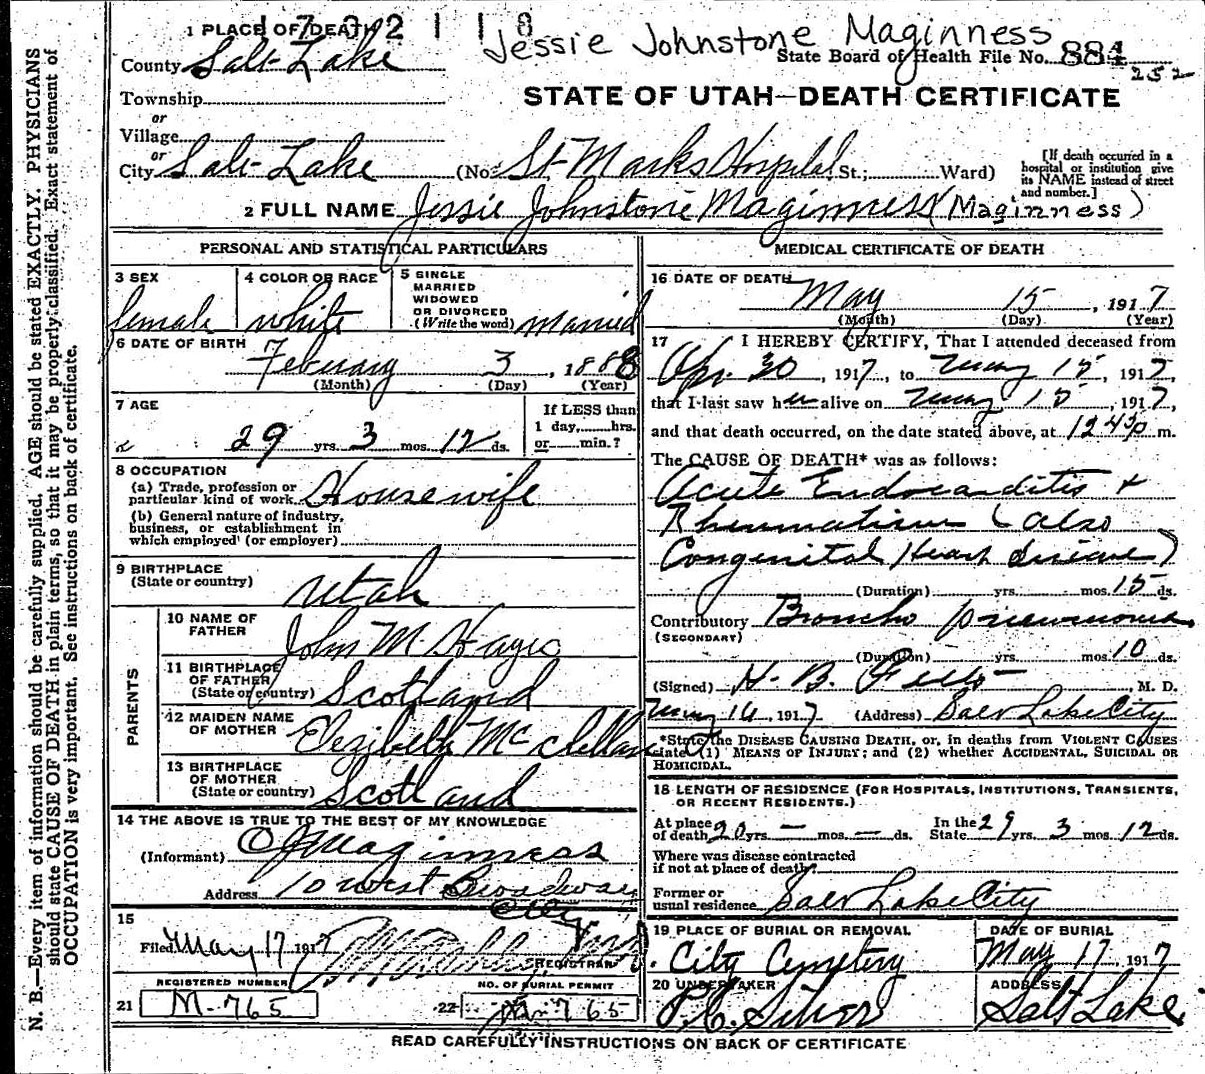 1732118
Jessie Johnstone Maginness
1 PLACE OF DEATH
County Salt Lake
State Board of Health File No. 884
252
Township
or
Village
or
City Salt Lake (No. St Marks Hospital St.; Ward)
STATE OF UTAH—DEATH CERTIFICATE
[If death occurred in a
hospital or institution give
its NAME instead of street
and number.]
2 FULL NAME Jessie Johnstone Maginness (Maginness)
PERSONAL AND STATISTICAL PARTICULARS
3 SEX
female
4 COLOR OR RACE
white
5 SINGLE
MARRIED
WIDOWED
OR DIVORCED
(Write the word) married
6 DATE OF BIRTH
February 3, 1888
(Month) (Day) (Year)
7 AGE
29 yrs. 3 mos. 12 ds.
If LESS than
1 day,......hrs.
or......min.?
8 OCCUPATION
(a) Trade, profession or
particular kind of work Housewife
(b) General nature of industry,
business, or establishment in
which employed (or employer)
9 BIRTHPLACE
(State or country) Utah
PARENTS
10 NAME OF
FATHER John M.
11 BIRTHPLACE
OF FATHER
(State or country) Scotland
12 MAIDEN NAME
OF MOTHER Elezibeth McClellan
13 BIRTHPLACE
OF MOTHER
(State or country) Scotland
14 THE ABOVE IS TRUE TO THE BEST OF MY KNOWLEDGE
(Informant) O J Maginness
Address 10 West Broadway
City
15
Filed May 17 1917
REGISTRAR
REGISTERED NUMBER
21 M-765
NO. OF BURIAL PERMIT
22 M-765
MEDICAL CERTIFICATE OF DEATH
16 DATE OF DEATH
May 15, 1917
(Month) (Day) (Year)
17 I HEREBY CERTIFY, That I attended deceased from
Apr. 30, 1917, to May 15, 1917,
that I last saw her alive on May 15, 1917,
and that death occurred, on the date stated above, at 1243p m.
The CAUSE OF DEATH* was as follows:
Acute Endocarditis +
Rheumatism (also
Congenital Heart disease)
(Duration) yrs. mos. 15 ds.
Contributory Broncho pneumonia
(SECONDARY)
(Duration) yrs. mos. 10 ds.
(Signed) H. B. M. D.
May 16, 1917 (Address) Salt Lake City
*State the DISEASE CAUSING DEATH, or, in deaths from VIOLENT CAUSES
state (1) MEANS OF INJURY; and (2) whether ACCIDENTAL, SUICIDAL OR
HOMICIDAL.
18 LENGTH OF RESIDENCE (FOR HOSPITALS, INSTITUTIONS, TRANSIENTS,
OR RECENT RESIDENTS.)
At place
of death 20 yrs. — mos. — ds.
In the
State 29 yrs. 3 mos. 12 ds.
Where was disease contracted
if not at place of death?
Former or
usual residence Salt Lake City
19 PLACE OF BURIAL OR REMOVAL
City Cemetery
DATE OF BURIAL
May 17 1917
20 UNDERTAKER
ADDRESS
Salt Lake
READ CAREFULLY INSTRUCTIONS ON BACK OF CERTIFICATE
N. B.—Every item of information should be carefully supplied. AGE should be stated EXACTLY. PHYSICIANS
should state CAUSE OF DEATH in plain terms, so that it may be properly classified. Exact statement of
OCCUPATION is very important. See instructions on back of certificate.